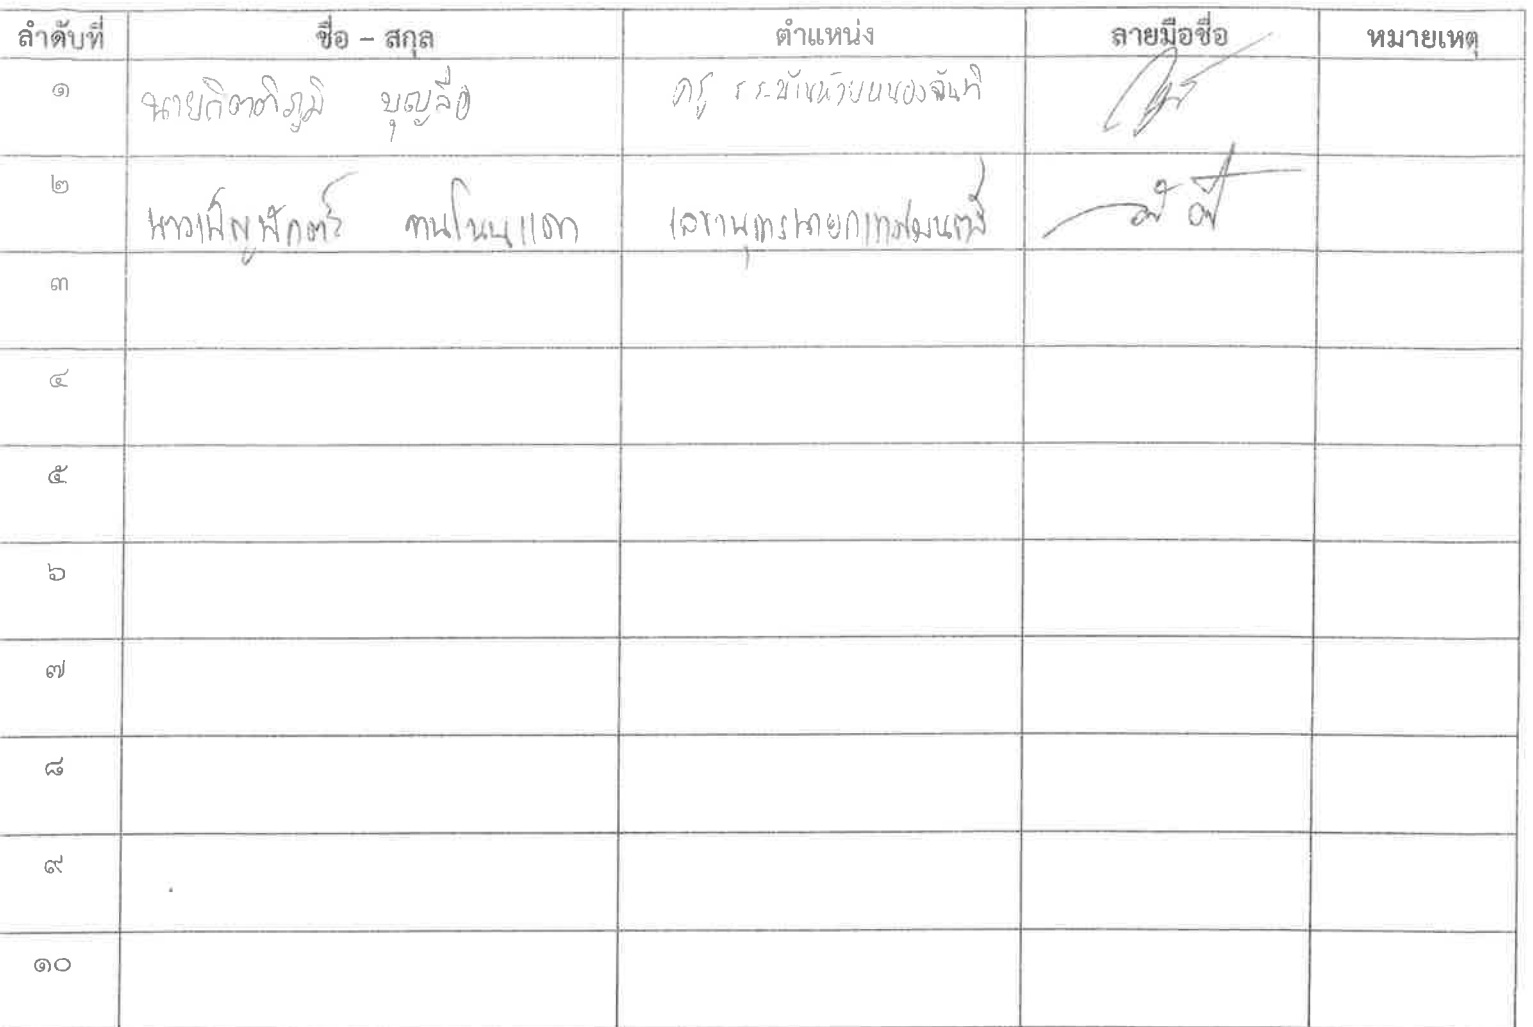 ลำดับที่ ชื่อ – สกุล ตำแหน่ง ลายมือชื่อ หมายเหตุ
๑ นายกิตติภูมิ บุญลือ ครู รร.บ้านห้วยหนอง
๒ เลขานุการนายกเทศมนตรี
๓
๔
๕
๖
๗
๘
๙
๑๐